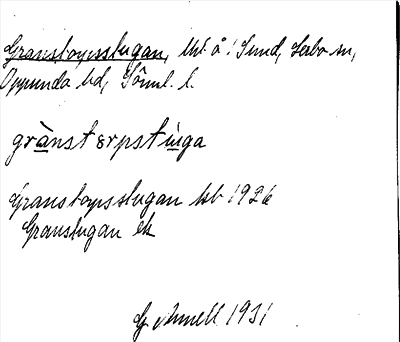 Granstorpsstugan, lht å Sund, Lerbo sn,
Oppunda hd, Söml. l.
grànstorpstùga
Granstorpsstugan kb 1926
Granstugan ek
G. Ahnell 1931